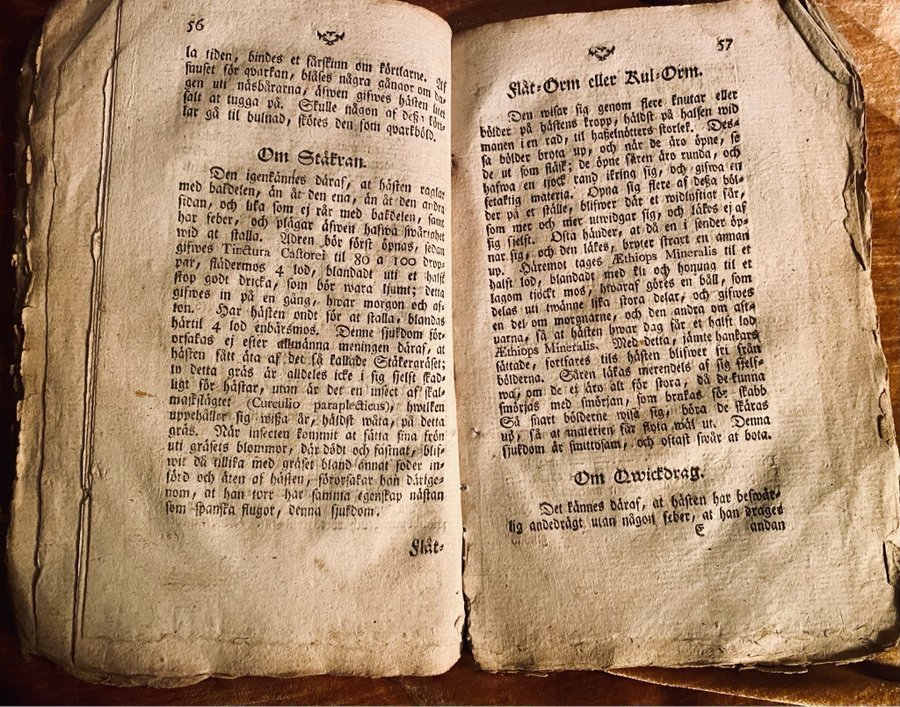 56
la tiden, bindes et fårskinn om körtlarne. Af
snuset för qvarkan, blåses några gångor om da-
gen uti näsbårarna, äfwen gifwes hästen litet
salt at tugga på. Skulle någon af deßa kört-
lar gå til bulnad, skötes den som qvarkböld.
Om Stäkran.
Den igenkännes däraf, at hästen raglar
med bakdelen, än åt den ena, än åt den andra
sidan, och lika som ej rår med bakdelen, samt
har feber, och plågar äfwen hafwa swårighet
wid at stalla. Ådren bör först öpnas, sedan
gifwes Tinctura Castorei til 80 a 100 drop-
par, flädermos 4 lod, blandadt uti et halft
stop godt dricka, som bör wara ljumt; detta
gifwes in på en gång, hwar morgon och af-
ton. Har hästen ondt för at stalla, blandas
härtil 4 lod enbärsmos. Denne sjukdom för-
orsakas ej efter allmänna meningen däraf, at
hästen fått äta af det så kallade Stäkergräset;
ty detta gräs är alldeles icke i sig sjelft skad-
ligt för hästar, utan är det en insect af skal-
maskslägtet (Curculio paraplecticus), hwilken
uppehåller sig wißa år, häldst wåta, på detta
gräs. När insecten kommit at sätta sina frön
uti gräsets blommor, där dödt och fastnat, blif-
wit då tillika med gräset bland annat foder in-
förd och äten af hästen, förorsakar han därige-
nom, at han torr har samma egenskap nästan
som spanska flugor, denna sjukdom.
Flåt-
57
Flåt-Orm eller Kul-Orm.
Den wisar sig genom flere knutar eller
bölder på hästens kropp, häldst på halsen wid
manen i en rad, til haßelnötters storlek. Des-
sa bölder brota up, och när de äro öpne, se
de ut som fläsk; de öpne såren äro runda, och
hafwa en tjock rand ikring sig, och gifwa en
fetaktig materia. Öpna sig flere af deßa böl-
der på et ställe, blifwer där et widlyftigt sår,
som mer och mer utwidgar sig, och läkes ej af
sig sjelft. Ofta händer, at då en i sender öp-
nar sig, och den läkes, bryter straxt en annan
up. Häremot tages Æthiops Mineralis til et
halft lod, blandadt med kli och honung til et
lagom tjockt mos, hwaraf göres en båll, som
delas uti twänne lika stora delar, och gifwes
en del om morgnarne, och den andra om aft-
narna, så at hästen hwar dag får et halft lod
Æthiops Mineralis. Med detta, jämte hankars
sättade, fortfares tils hästen blifwer fri från
bölderna. Såren läkas merendels af sig sjelf-
wa, om de ej äro alt för stora, då de kunna
smörjas med smörjan, som brukas för skabb
Så snart bölderne wisa sig, böra de skäras
up, så at materien får flyta wäl ut. Denna
sjukdom är smittosam, och oftast swår at bota.
Om Qwickdrag.
Det kännes däraf, at hästen har beswär-
lig andedrägt utan någon feber, at han drager
E andan